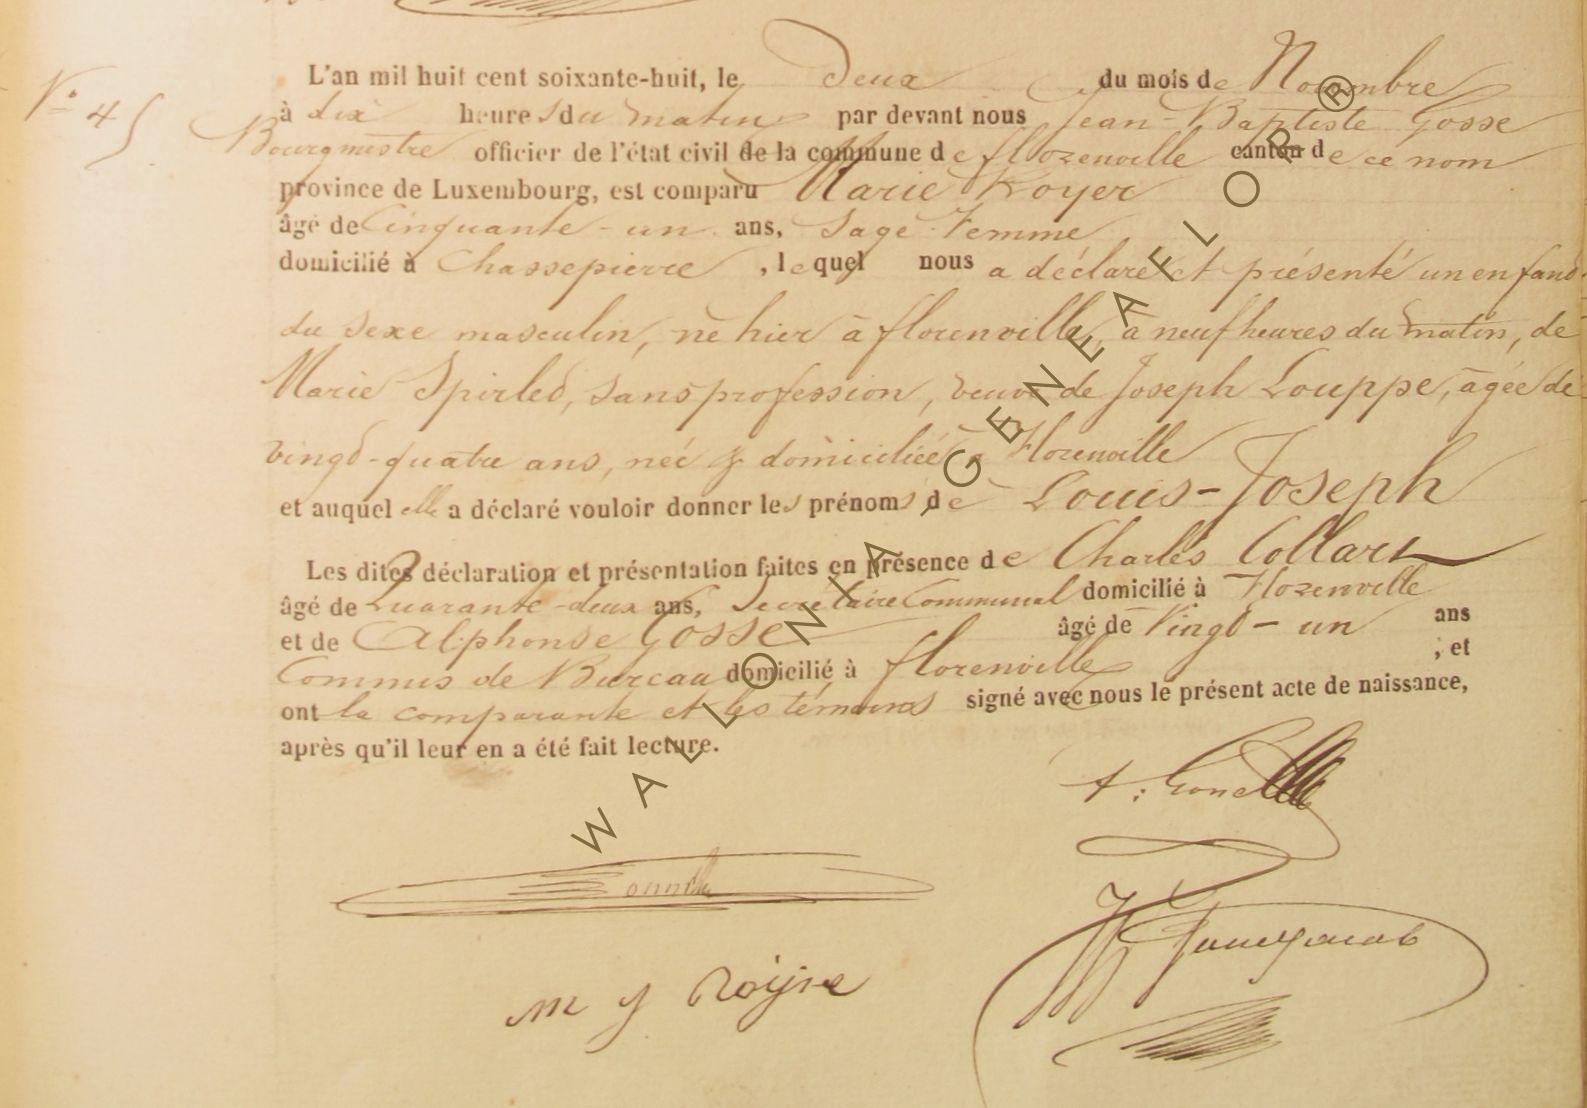 L'an mil huit cent soixante-huit, le Deux du mois de Novembre
N° 45
à dix heures du matin par devant nous Jean-Baptiste Gosse
Bourgmestre officier de l'état civil de la commune de florenville canton de ce nom
province de Luxembourg, est comparu Marie Royer
âgé de Cinquante-un ans, Sage-Femme
domicilié à Chassepierre, lequel nous a déclaré et présenté un enfant
du sexe masculin, né hier à florenville, à neuf heures du matin, de
Marie Spirlet, sans profession, veuve de Joseph Louppe, âgée de
vingt-quatre ans, née & domiciliée à Florenville
et auquel elle a déclaré vouloir donner les prénoms de Louis-Joseph
Les dites déclaration et présentation faites en présence de Charles Collart
âgé de Quarante-deux ans, Secrétaire Communal domicilié à Florenville
et de Alphonse Gosse âgé de Vingt-un ans
Commis de Bureau domicilié à florenville ; et
ont la comparante et les témoins signé avec nous le présent acte de naissance,
après qu'il leur en a été fait lecture.
m j
WALLONIA, GENEAFLOR ®